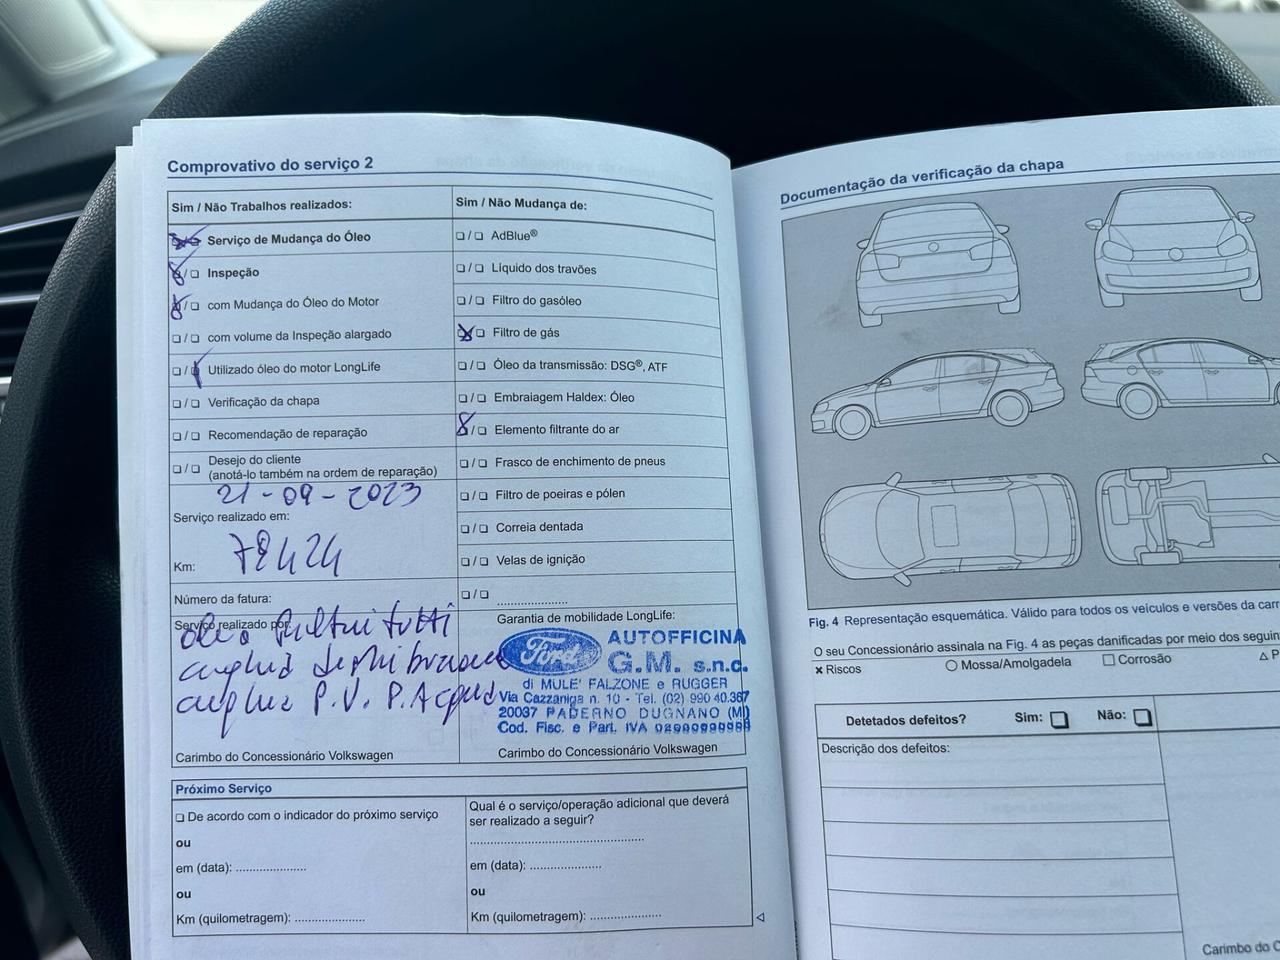 Comprovativo do serviço 2
Sim / Não Trabalhos realizados:
Serviço de Mudança do Óleo
Inspeção
com Mudança do Óleo do Motor
com volume da Inspeção alargado
Utilizado óleo do motor LongLife
Verificação da chapa
Recomendação de reparação
Desejo do cliente
(anotá-lo também na ordem de reparação)
21-09-2023
Serviço realizado em:
Km: 78424
Número da fatura:
Serviço realizado por:
olio filtri tutti
cinghia
cinghia P.V. P. Acqua
Carimbo do Concessionário Volkswagen
Sim / Não Mudança de:
AdBlue®
Líquido dos travões
Filtro do gasóleo
Filtro de gás
Óleo da transmissão: DSG®, ATF
Embraiagem Haldex: Óleo
Elemento filtrante do ar
Frasco de enchimento de pneus
Filtro de poeiras e pólen
Correia dentada
Velas de ignição
Garantia de mobilidade LongLife:
Ford
AUTOFFICINA
G.M. s.n.c.
di MULE' FALZONE e RUGGER
Via Cazzaniga n. 10 - Tel. (02) 990.40.367
20037 PADERNO DUGNANO (MI)
Cod. Fisc. e Part. IVA
Carimbo do Concessionário Volkswagen
Próximo Serviço
De acordo com o indicador do próximo serviço
ou
em (data):
ou
Km (quilometragem):
Qual é o serviço/operação adicional que deverá
ser realizado a seguir?
em (data):
ou
Km (quilometragem):
Documentação da verificação da chapa
Fig. 4 Representação esquemática. Válido para todos os veículos e versões da
O seu Concessionário assinala na Fig. 4 as peças danificadas por meio dos
Riscos
Mossa/Amolgadela
Corrosão
Detetados defeitos? Sim: Não:
Descrição dos defeitos:
Carimbo do